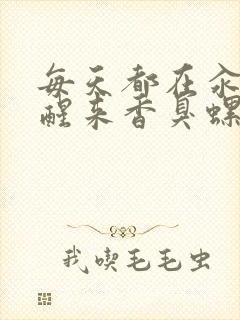 每天都在汆
醒来香臭螺
我喫毛毛虫